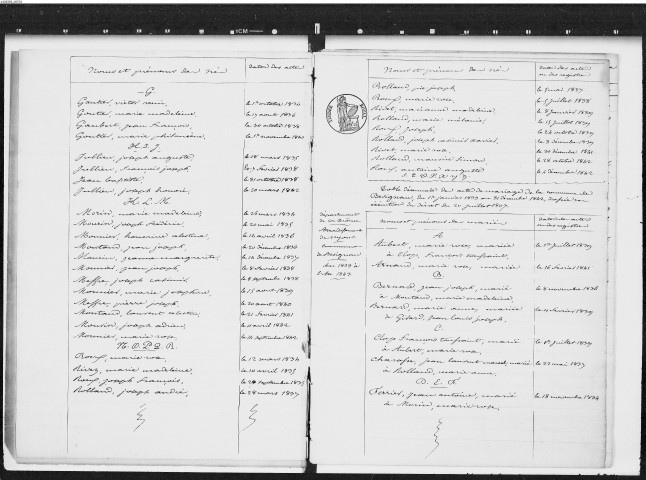 Noms et prénoms des nés
dates des actes
G
Gontier, victor remi, le 1er octobre 1834
Gontier, marie madeleine, le 17 aout 1836
Gaubert, jean françois, le 20 octobre 1838
Gontier, marie philomène, le 1er novembre 1840
H. I. J.
Jullien, joseph auguste, le 18 mars 1835
Jullien, francois joseph, le 7 février 1838
Jean baptiste
Jullien, joseph honoré, le 30 mars 1842
K. L. M.
Morin, marie madeleine, le 26 mars 1834
Mounier, joseph frédéric, le 20 mai 1835
Mounier, honorine célestine, le 16 avril 1836
Moutand, jean joseph, le 20 décembre 1836
jeanne marguerite, le 18 décembre 1837
Mounier, jean joseph, le 8 février 1838
Meffre, joseph casimir, le 4 septembre 1838
Mounier, marie josephine, le 15 avril 1839
Meffre, pierre joseph, le 20 aout 1840
Moutand, laurent célestin, le 21 février 1841
Mounier, joseph adrien, le 11 avril 1842
Mounier, marie rose, le 16 septembre 1842
N. O. P. Q. R.
Roux, marie rose, le 12 mars 1834
marie madeleine, le 10 avril 1835
Roux joseph françois, le 24 septembre 1835
Rolland, joseph andré, le 24 mars 1837
Noms et prénoms des nés
dates des actes
ou des registres
Rolland, pie joseph, le 5 mai 1837
Roux, marie rose, le 5 juillet 1838
marianne madeleine, le 8 janvier 1839
Rolland, marie mélanie, le 15 juillet 1839
Roux joseph, le 24 octobre 1839
Rolland, joseph, le 3 décembre 1839
marie rose, le 20 décembre 1841
Rolland, simon, le 28 octobre 1842
Roux, antoine auguste, le 6 décembre 1842
S. T. U. V. X. Y. Z.
Table décennale des actes de mariage de la commune de
du 1er janvier 1833 au 31 décembre 1842, dressée en
exécution du décret du 20 juillet 1807.
département
de la Drôme
commune
de
An 1833 à
l'An 1843
Noms et prénoms des mariés
dates des actes
A
Aubert, marie rose, mariée
à Clops françois toussaint, le 1er juillet 1839
Arnaud, marie rose, mariée le 16 février 1841
B.
Bernard jean joseph, marié
à Moutand, marie madeleine, le 8 novembre 1836
Bernard, marie anne, mariée
à Girard, jean louis joseph, le 11 février 1839
C.
Clops françois toussaint, marié
à Aubert, marie rose, le 1er juillet 1839
jean laurent marcel, marié
à Rolland, marie anne, le 22 mai 1837
D. E. F.
Ferrier, jean antoine, marié
à Morin, marie rose, le 18 novembre 1834